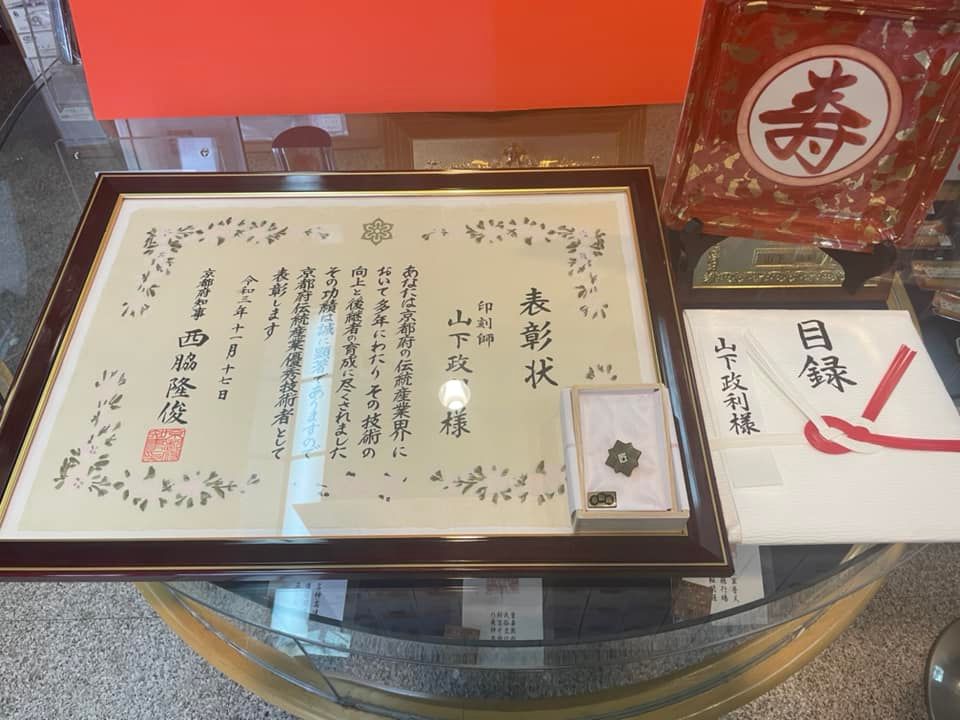 表彰状
印刻師
山下政 様
あなたは京都府の伝統産業界に
おいて多年にわたり その技術の
向上と後継者の育成に尽くされました
その功績は誠に顕著でありますので
京都府伝統産業優秀技術者として
表彰します
令和三年十一月十七日
京都府知事 西脇隆俊
寿
目録
山下政利様
匠